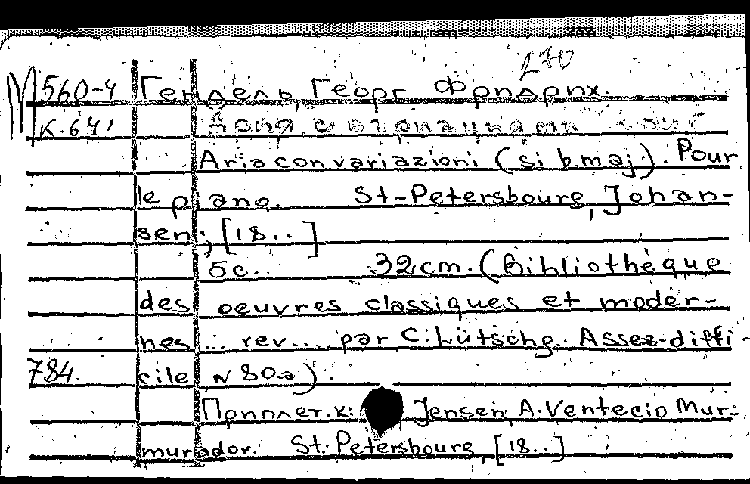 270
М 560-4 Гендель, Георг Фридрих.
к.641 Ария с вариациями
Aria con variazioni (si b.maj.). Pour
le piano. St-Petersbourg, Johan-
sen, [18..]
5c. 32cm. (Bibliothèque
des oeuvres classiques et moder-
nes ... rev.... par C. Lütschg. Assez-diffi-
784. cile N 80a).
Приплет. к: Jensen, A. Ventecio Mur-
murador. St. Petersbourg, [18..]